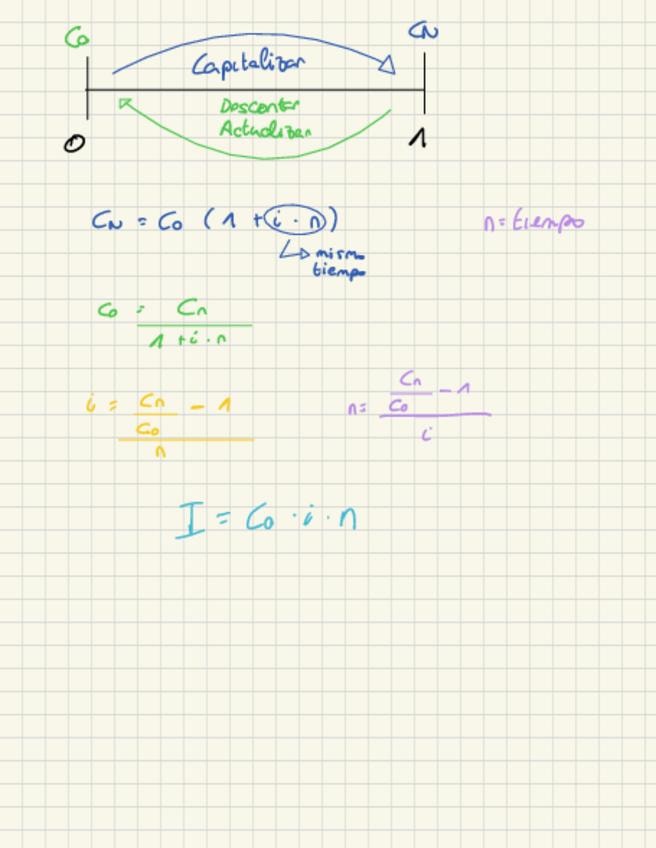 Co CN
Capitalizar
Descontar
Actualizar
0 1
CN = Co (1 + i · n) n = tiempo
mismo
tiempo
Co = Cn / 1 + i · n
i = Cn / Co - 1 / n n = Cn / Co - 1 / i
I = Co · i · n